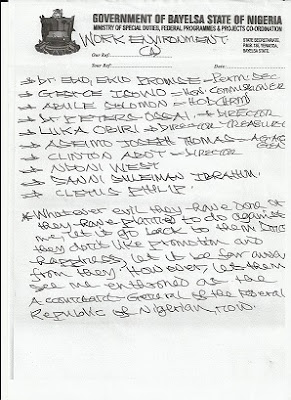 GOVERNMENT OF BAYELSA STATE OF NIGERIA
MINISTRY OF SPECIAL DUTIES, FEDERAL PROGRAMMES & PROJECTS CO-ORDINATION
STATE SECRETARIAT,
YENAGOA,
BAYELSA STATE.
WORK ENVIROMENT
Our Ref:
Your Ref:
Date:
→ Dr EBIO, EKIO PROMISE - Perm. Sec
→ GEORGE - Hon. Commissioner
→ SOLOMON -
→ Dr PETERS - DIRECTOR
→ LUKA OBIRI → DIRECTOR - TREASURY
→ JOSEPH THOMAS - AG. AG
→ CLINTON - DIRECTOR
→ WEST
→ SANNI SULEIMAN IBRAHIM
→ CLETUS PHILIP
* Whatever evil they have done or
they have planned to do against
me, let it go back to them
they don't like promotion and
happiness, let it be far away
from they. However, let them
see me enthroned as the
Accountant-General of the Federal
Republic of Nigerian, now.